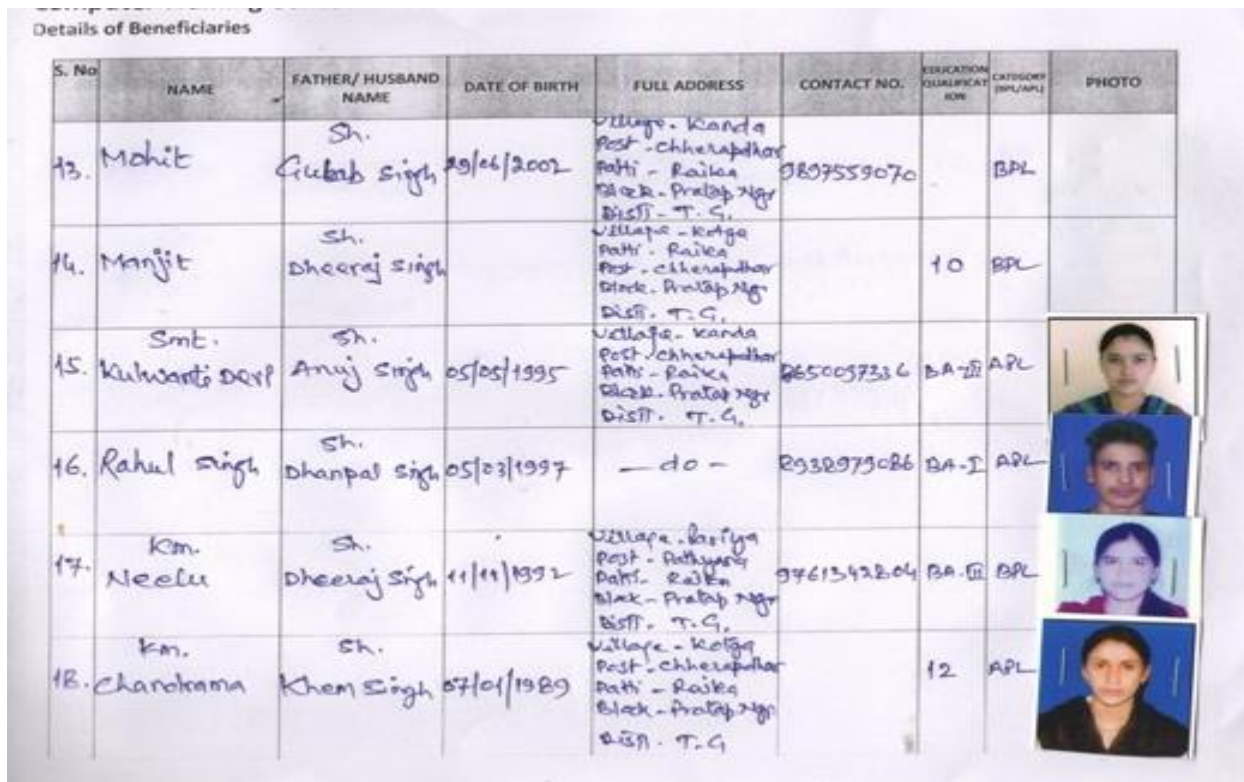 Details of Beneficiaries
S. No NAME FATHER/ HUSBAND NAME DATE OF BIRTH FULL ADDRESS CONTACT NO. EDUCATION QUALIFICATION CATEGORY (BPL/APL) PHOTO
13. Mohit
Sh.
Gulab Singh
29/06/2002
Village - Kanda
Post - Chherapdhar
Patti - Raika
Block - Pratap Ngr
Distt - T.G.
9897559070
BPL
14. Manjit
Sh.
Dheeraj Singh
Village - Kotga
Patti - Raika
Post - Chherapdhar
Block - Pratap Ngr
Distt. T.G.
10
BPL
Smt.
15. Kulwanti Devi
Sh.
Anuj Singh
05/05/1995
Village - Kanda
Post - Chherapdhar
Patti - Raika
Block - Pratap Ngr
Distt. T.G.
BA-III
APL
16. Rahul Singh
Sh.
Dhanpal Singh
05/03/1997
- do -
8938979086
BA-I
APL
Km.
17. Neelu
Sh.
Dheeraj Singh
11/11/1992
Village -
Post -
Patti - Raika
Block - Pratap Ngr
Distt. T.G.
9761342804
BA-III
BPL
Km.
18. Chandrama
Sh.
Khem Singh
07/01/1989
Village - Kotga
Post - Chherapdhar
Patti - Raika
Block - Pratap Ngr
Distt. T.G
12
APL